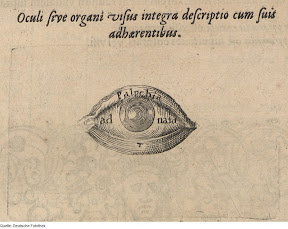 Oculi ſive organi viſus integra deſcriptio cum ſuis
adhærentibus.
Palpebra
ad nata
Quelle: Deutsche Fotothek